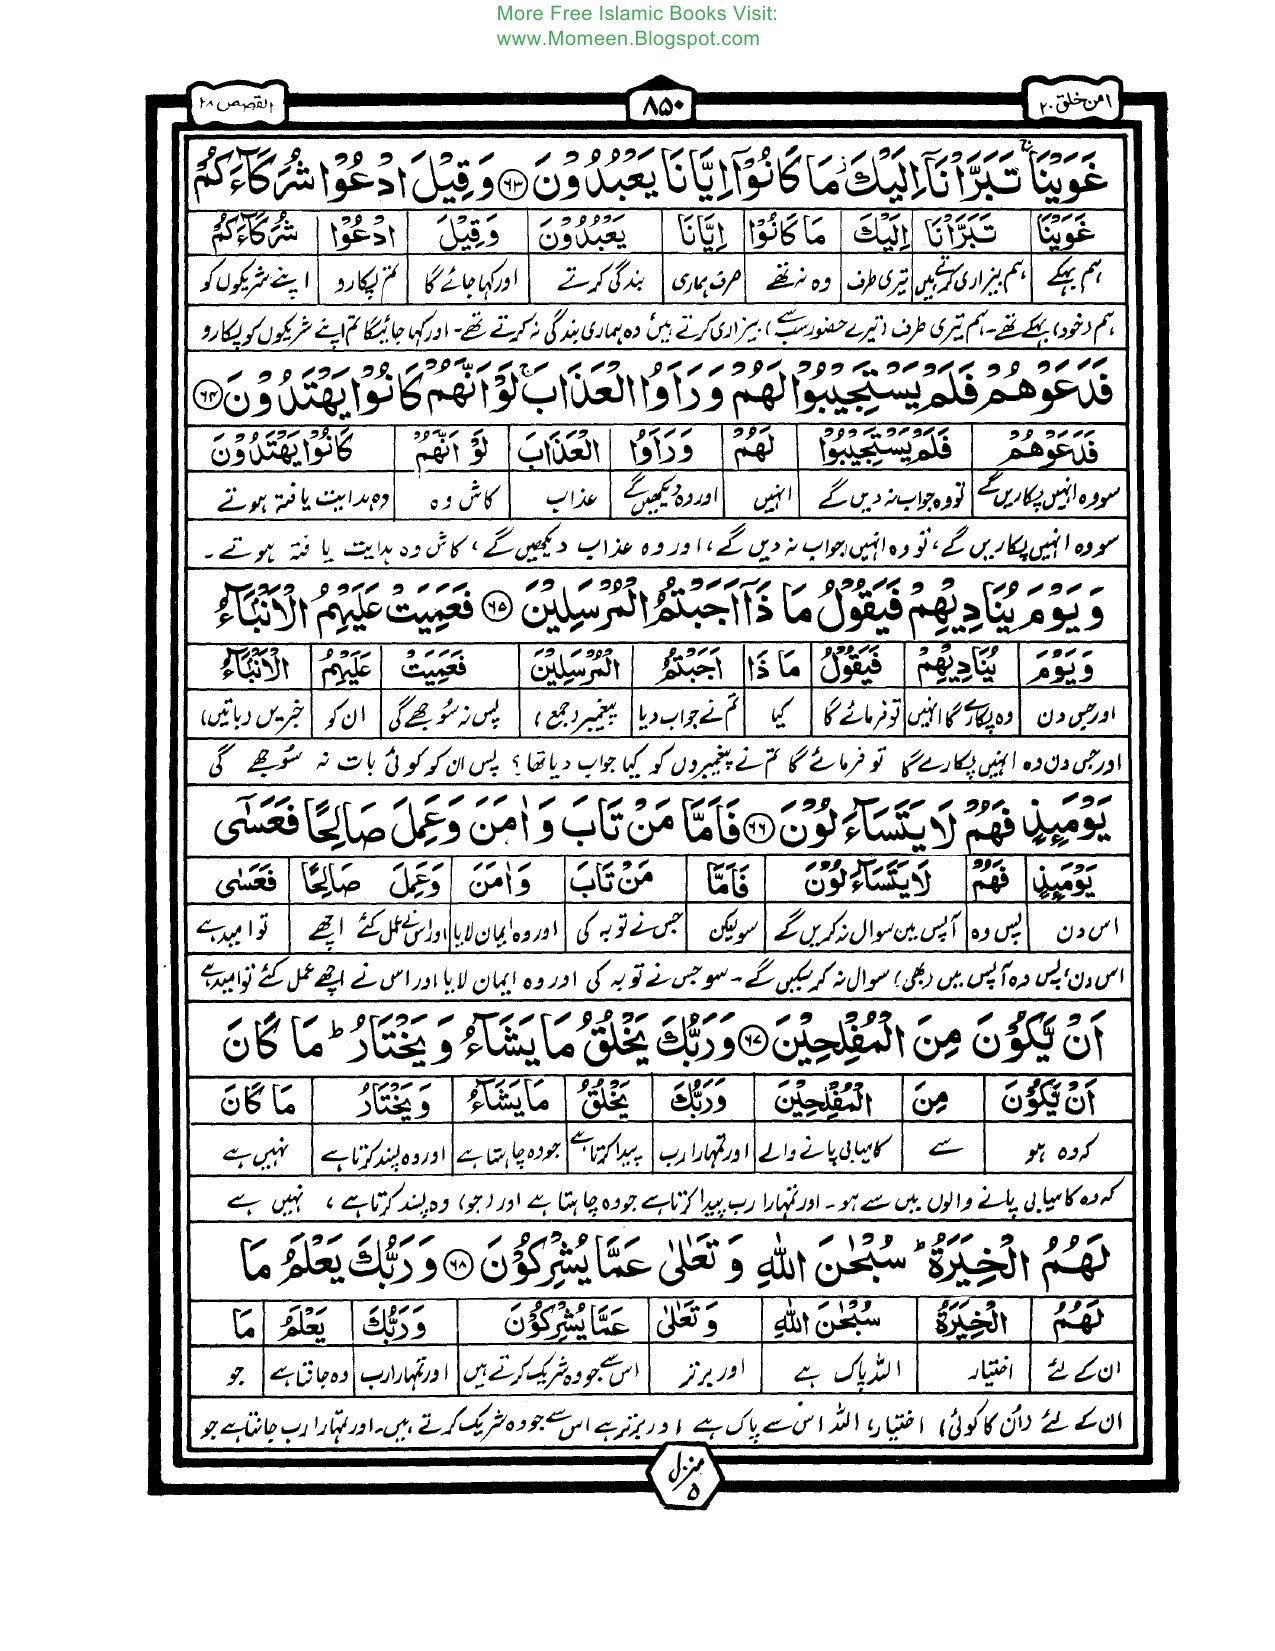 More Free Islamic Books Visit:
www.Momeen.Blogspot.com
القصص ۲۸
۸۵۰
امن خلق ۲۰
غَوَيْنَا ۚ تَبَرَّاْنَاۤ اِلَيْكَ ۫ مَا كَانُوْۤا اِيَّانَا يَعْبُدُوْنَ ۶۳ وَ قِيْلَ ادْعُوْا شُرَكَآءَكُمْ
غَوَيْنَا تَبَرَّاْنَا اِلَيْكَ مَا كَانُوْا اِيَّانَا يَعْبُدُوْنَ وَقِيْلَ ادْعُوْا شُرَكَآءَكُمْ
ہم بہکے ہم بیزاری کرتے ہیں تیری طرف وہ نہ تھے صرف ہماری بندگی کرتے اور کہا جائے گا تم پکارو اپنے شریکوں کو
ہم (خود) بہکے تھے۔ ہم تیری طرف (تیرے حضور سب سے) بیزاری کرتے ہیں وہ ہماری بندگی نہ کرتے تھے۔ اور کہا جائیگا تم اپنے شریکوں کو پکارو
فَدَعَوْهُمْ فَلَمْ يَسْتَجِيْبُوْا لَهُمْ وَرَاَوُا الْعَذَابَ ۚ لَوْ اَنَّهُمْ كَانُوْا يَهْتَدُوْنَ ۶۴
فَدَعَوْهُمْ فَلَمْ يَسْتَجِيْبُوْا لَهُمْ وَرَاَوُا الْعَذَابَ لَوْ اَنَّهُمْ كَانُوْا يَهْتَدُوْنَ
سو وہ انہیں پکاریں گے تو وہ جواب نہ دیں گے انہیں اور وہ دیکھیں گے عذاب کاش وہ وہ ہدایت یافتہ ہوتے
سو وہ انہیں پکاریں گے، تو وہ انہیں جواب نہ دیں گے، اور وہ عذاب دیکھیں گے، کاش وہ ہدایت یافتہ ہوتے۔
وَ يَوْمَ يُنَادِيْهِمْ فَيَقُوْلُ مَا ذَاۤ اَجَبْتُمُ الْمُرْسَلِيْنَ ۶۵ فَعَمِيَتْ عَلَيْهِمُ الْاَنْۢبَآءُ
وَيَوْمَ يُنَادِيْهِمْ فَيَقُوْلُ مَا ذَا اَجَبْتُمُ الْمُرْسَلِيْنَ فَعَمِيَتْ عَلَيْهِمُ الْاَنْۢبَآءُ
اور جس دن وہ پکارے گا انہیں تو فرمائے گا کیا تم نے جواب دیا پیغمبر (جمع) پس نہ سُوجھے گی ان کو خبریں (باتیں)
اور جس دن وہ انہیں پکارے گا تو فرمائے گا تم نے پیغمبروں کو کیا جواب دیا تھا؟ پس ان کو کوئی بات نہ سُوجھے گی
يَوْمَئِذٍ فَهُمْ لَا يَتَسَآءَلُوْنَ ۶۶ فَاَمَّا مَنْ تَابَ وَ اٰمَنَ وَعَمِلَ صَالِحًا فَعَسٰۤى
يَوْمَئِذٍ فَهُمْ لَا يَتَسَآءَلُوْنَ فَاَمَّا مَنْ تَابَ وَاٰمَنَ وَعَمِلَ صَالِحًا فَعَسٰى
اس دن پس وہ آپس میں سوال نہ کریں گے سو لیکن جس نے توبہ کی اور وہ ایمان لایا اور اس نے عمل کئے اچھے تو امید ہے
اس دن، پس وہ آپس میں (بھی) سوال نہ کر سکیں گے۔ سو جس نے توبہ کی اور وہ ایمان لایا اور اس نے اچھے عمل کئے تو امید ہے
اَنْ يَّكُوْنَ مِنَ الْمُفْلِحِيْنَ ۶۷ وَرَبُّكَ يَخْلُقُ مَا يَشَآءُ وَ يَخْتَارُ ؕ مَا كَانَ
اَنْ يَّكُوْنَ مِنَ الْمُفْلِحِيْنَ وَرَبُّكَ يَخْلُقُ مَا يَشَآءُ وَ يَخْتَارُ مَا كَانَ
کہ وہ ہو سے کامیابی پانے والے اور تمہارا رب پیدا کرتا ہے جو وہ چاہتا ہے اور وہ پسند کرتا ہے نہیں ہے
کہ وہ کامیابی پانے والوں میں سے ہو۔ اور تمہارا رب پیدا کرتا ہے جو وہ چاہتا ہے اور (جو) وہ پسند کرتا ہے، نہیں ہے
لَهُمُ الْخِيَرَةُ ؕ سُبْحٰنَ اللّٰهِ وَ تَعٰلٰى عَمَّا يُشْرِكُوْنَ ۶۸ وَ رَبُّكَ يَعْلَمُ مَا
لَهُمُ الْخِيَرَةُ سُبْحٰنَ اللّٰهِ وَتَعٰلٰى عَمَّا يُشْرِكُوْنَ وَرَبُّكَ يَعْلَمُ مَا
ان کے لئے اختیار اللہ پاک ہے اور برتر اس سے جو وہ شریک کرتے ہیں اور تمہارا رب وہ جانتا ہے جو
ان کے لئے (اُن کا کوئی) اختیار، اللہ اس سے پاک ہے اور برتر ہے اس سے جو وہ شریک کرتے ہیں۔ اور تمہارا رب جانتا ہے جو
منزل ۵